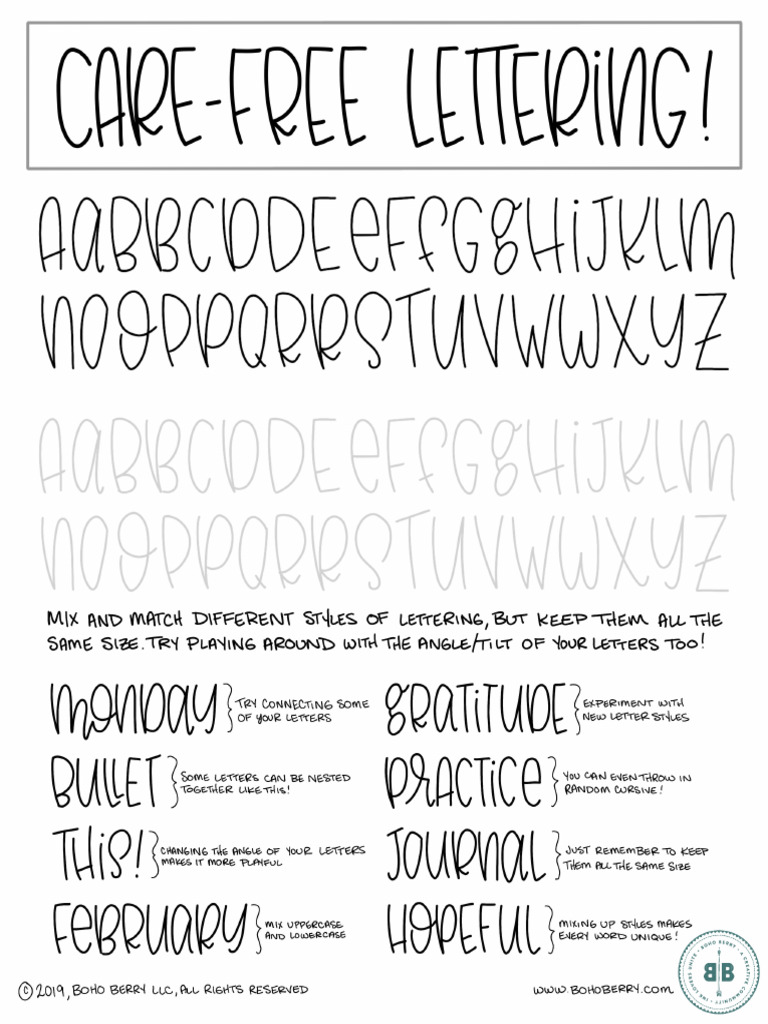 CARE-FREE LETTERING!
AaBBCDDEeFfGgHiJKLM
NOOPPQRRSTUVWWXYZ
AaBBCDDEeFfGgHiJKLM
NOOPPQRRSTUVWWXYZ
MIX AND MATCH DIFFERENT STYLES OF LETTERING, BUT KEEP THEM ALL THE
SAME SIZE. TRY PLAYING AROUND WITH THE ANGLE/TILT OF YOUR LETTERS TOO!
MONDAY } TRY CONNECTING SOME
OF YOUR LETTERS
GRATITUDE } EXPERIMENT WITH
NEW LETTER STYLES
BULLET } SOME LETTERS CAN BE NESTED
TOGETHER LIKE THIS!
PRACTICE } YOU CAN EVEN THROW IN
RANDOM CURSIVE!
THIS! } CHANGING THE ANGLE OF YOUR LETTERS
MAKES IT MORE PLAYFUL
JOURNAL } JUST REMEMBER TO KEEP
THEM ALL THE SAME SIZE
FEBRUARY } MIX UPPERCASE
AND LOWERCASE
HOPEFUL } MIXING UP STYLES MAKES
EVERY WORD UNIQUE!
© 2019, BOHO BERRY LLC, ALL RIGHTS RESERVED
WWW.BOHOBERRY.COM
BOHO BERRY • A CREATIVE COMMUNITY • INK LOVERS UNITE •
BB